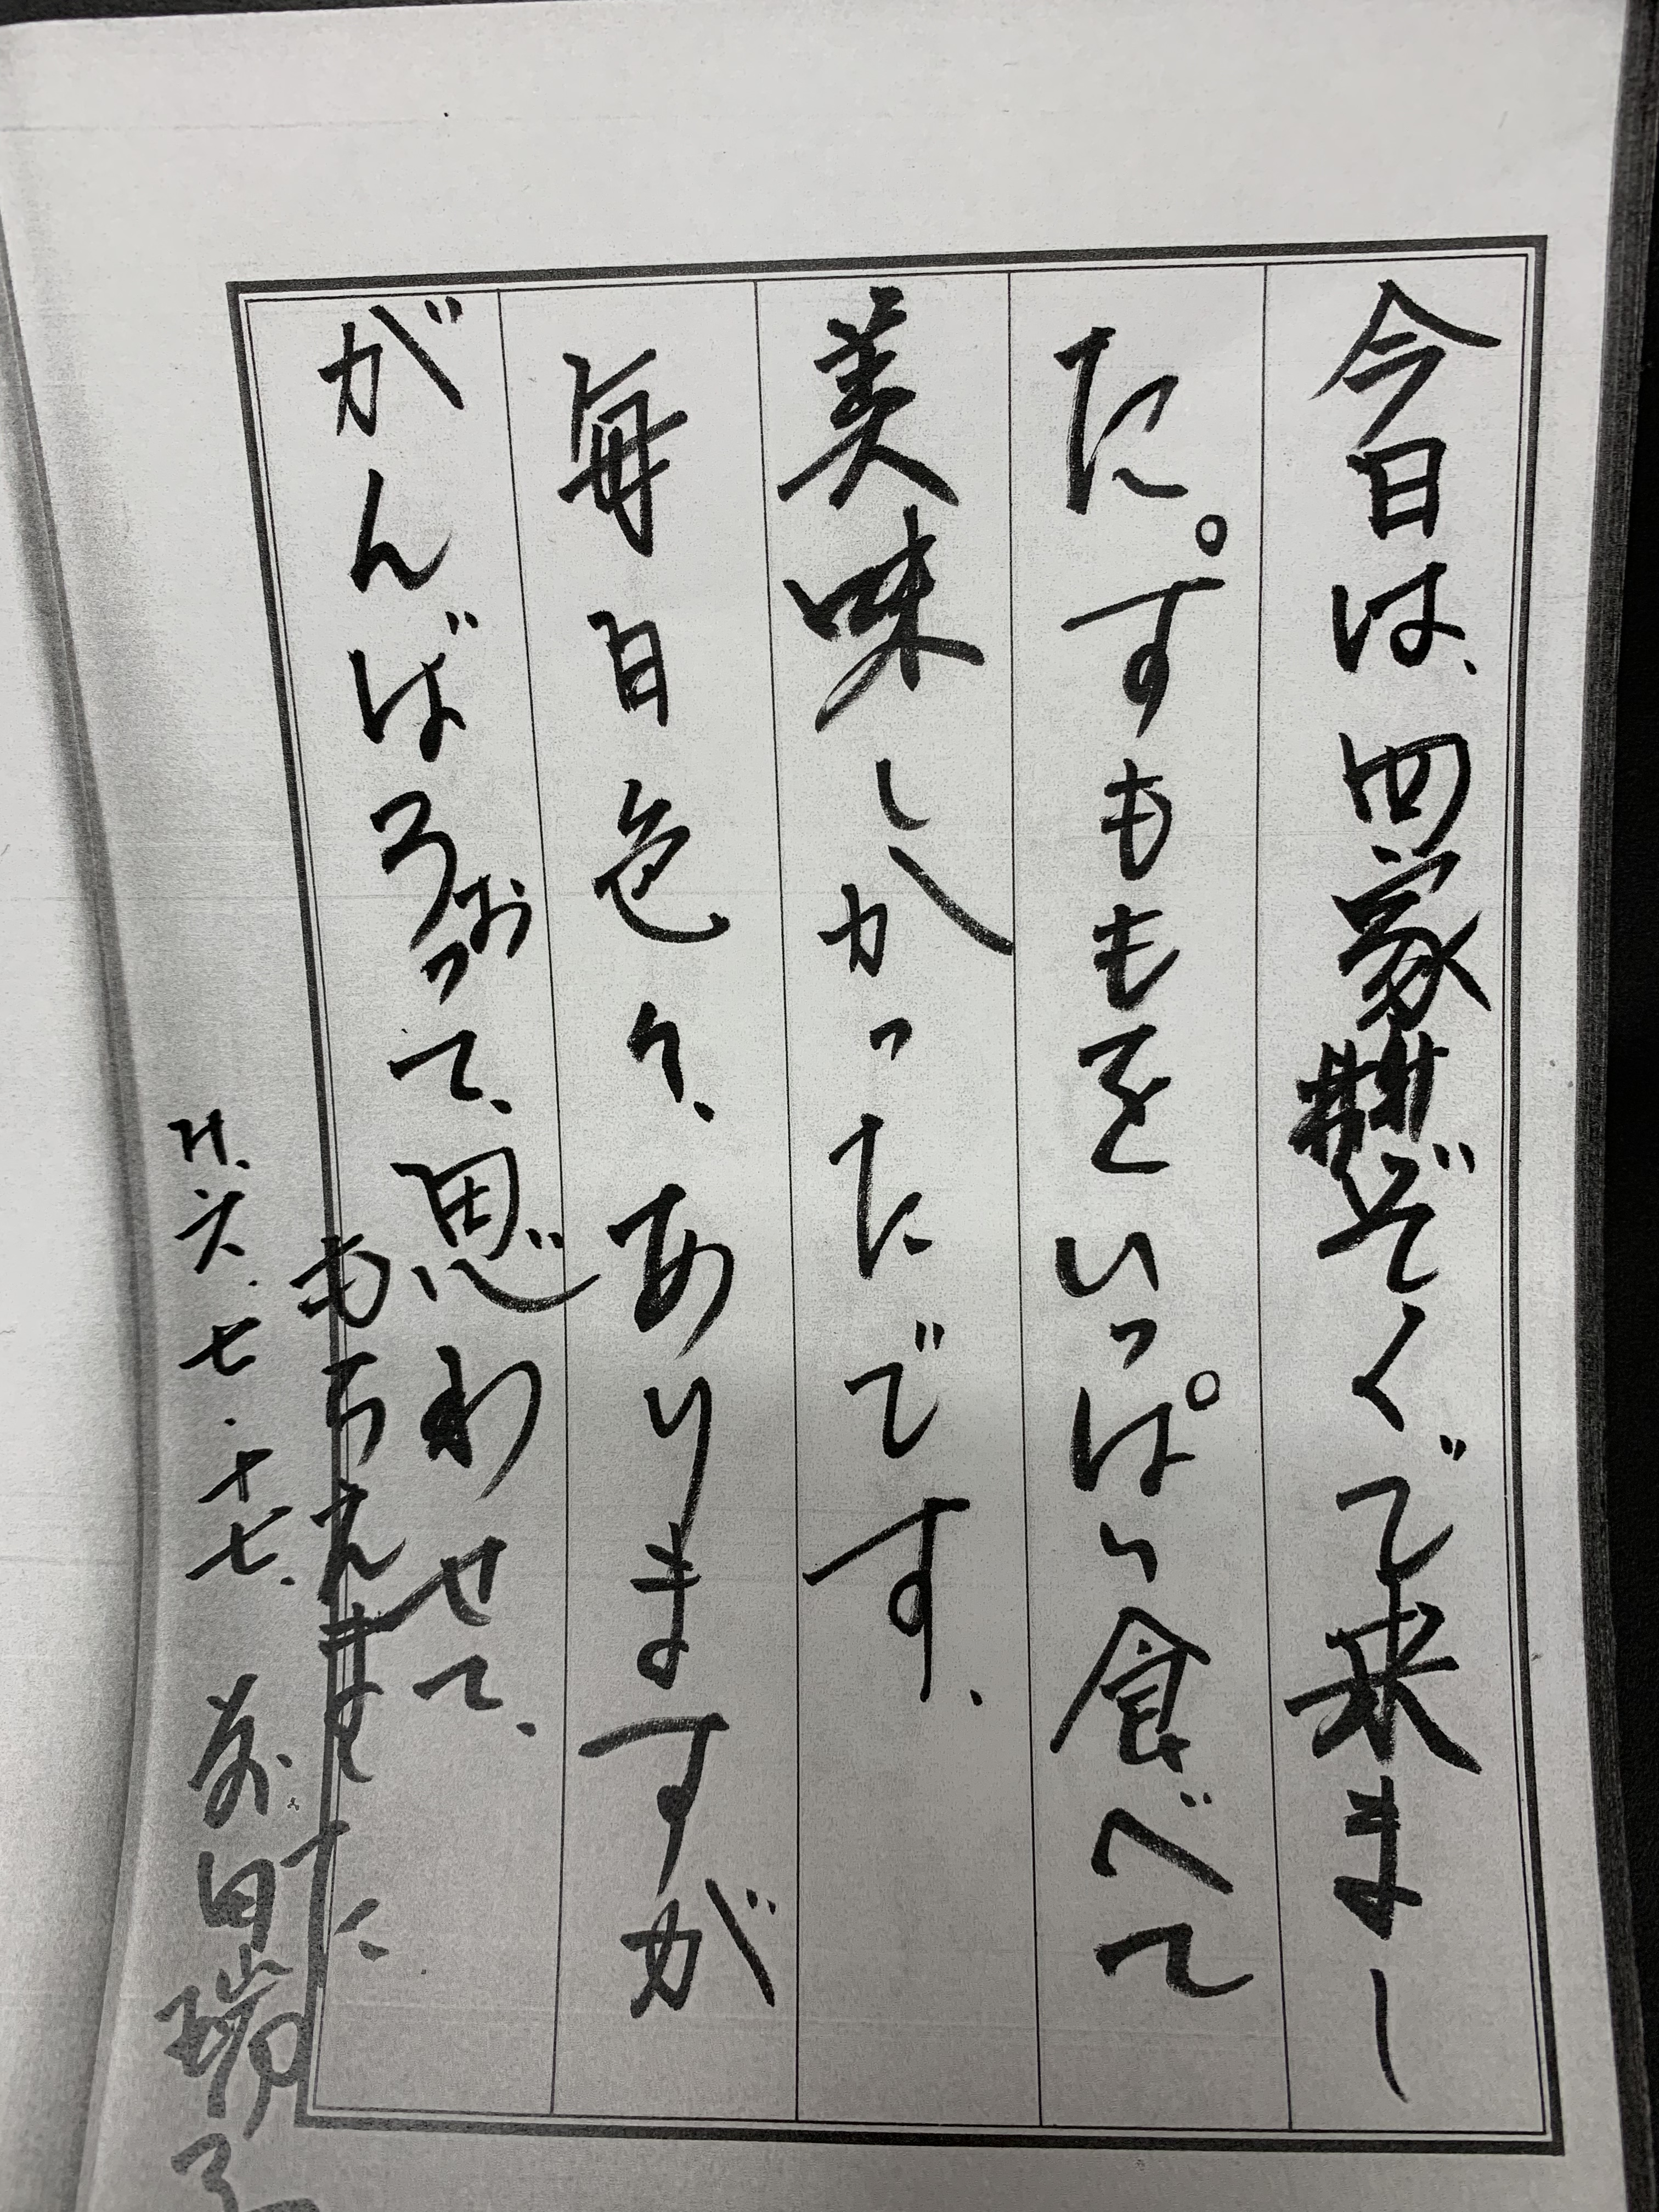 今日は、四家ぞくで来まし
た。すももをいっぱい食べて
美味しかったです、
毎日色々、ありますが
がんばろおって、思わせて、
もらえました
H.六.七.十七、前田瑞子